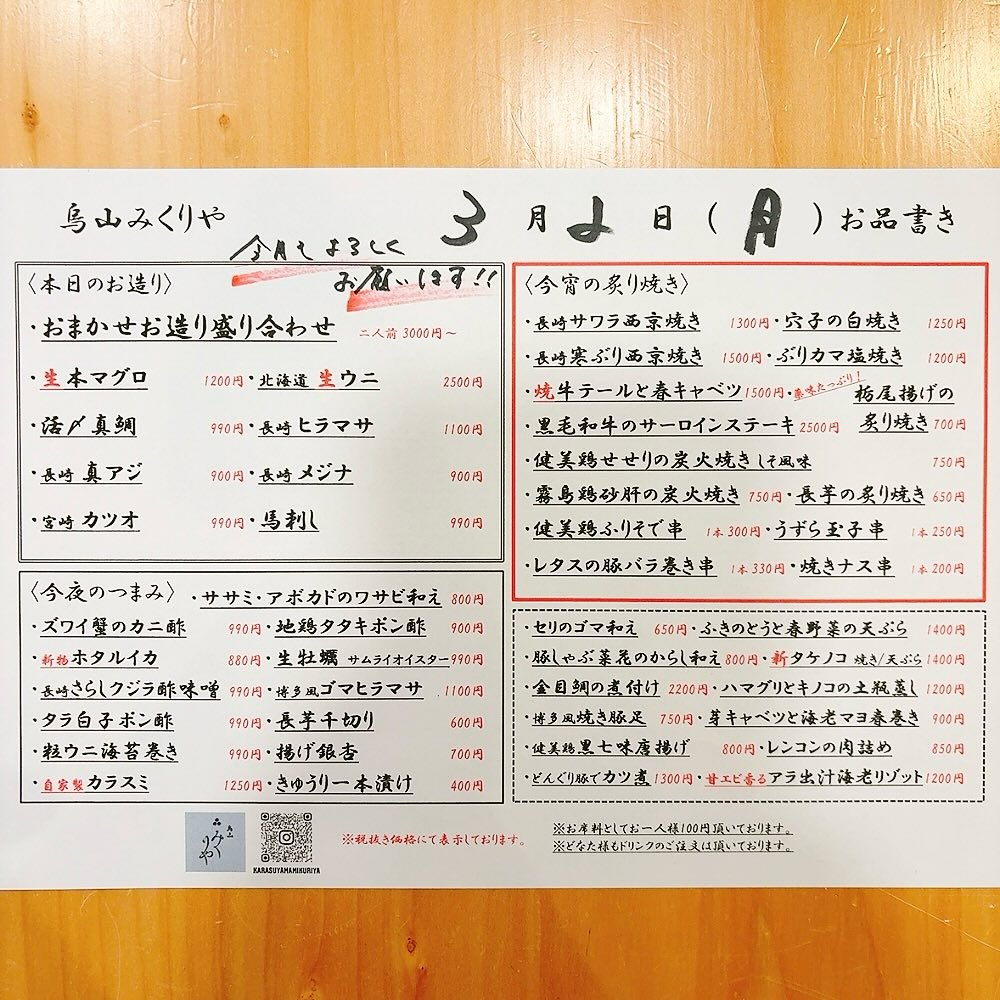 烏山みくりや
3月2日(月)お品書き
今月もよろしく
お願いします!!
〈本日のお造り〉
・おまかせお造り盛り合わせ 二人前 3000円～
・生本マグロ 1200円・北海道 生ウニ 2500円
・活〆真鯛 990円・長崎 ヒラマサ 1100円
・長崎 真アジ 900円・長崎 メジナ 900円
・宮崎 カツオ 990円・馬刺し 990円
〈今夜のつまみ〉・ササミ・アボカドのワサビ和え 800円
・ズワイ蟹のカニ酢 990円・地鶏タタキポン酢 900円
・新物ホタルイカ 880円・生牡蠣 サムライオイスター 990円
・長崎さらしクジラ酢味噌 990円・博多風ゴマヒラマサ 1100円
・タラ白子ポン酢 990円・長芋千切り 600円
・粒ウニ海苔巻き 990円・揚げ銀杏 700円
・自家製カラスミ 1250円・きゅうり一本漬け 400円
〈今宵の炙り焼き〉
・長崎サワラ西京焼き 1300円・穴子の白焼き 1250円
・長崎寒ぶり西京焼き 1500円・ぶりカマ塩焼き 1200円
・焼牛テールと春キャベツ 1500円・薬味たっぷり!栃尾揚げの
炙り焼き 700円
・黒毛和牛のサーロインステーキ 2500円
・健美鶏せせりの炭火焼き しそ風味 750円
・霧島鶏砂肝の炭火焼き 750円・長芋の炙り焼き 650円
・健美鶏ふりそで串 1本300円・うずら玉子串 1本250円
・レタスの豚バラ巻き串 1本330円・焼きナス串 1本200円
・セリのゴマ和え 650円・ふきのとうと春野菜の天ぷら 1400円
・豚しゃぶ菜花のからし和え 800円・新タケノコ 焼き/天ぷら 1400円
・金目鯛の煮付け 2200円・ハマグリとキノコの土瓶蒸し 1200円
・博多風焼き豚足 750円・芽キャベツと海老マヨ春巻き 900円
・健美鶏黒七味唐揚げ 800円・レンコンの肉詰め 850円
・どんぐり豚でカツ煮 1300円・甘エビ香るアラ出汁海老リゾット 1200円
みくりや
KARASUYAMAMIKURIYA
※税抜き価格にて表示しております。
※お席料としてお一人様100円頂いております。
※どなた様もドリンクのご注文は頂いております。